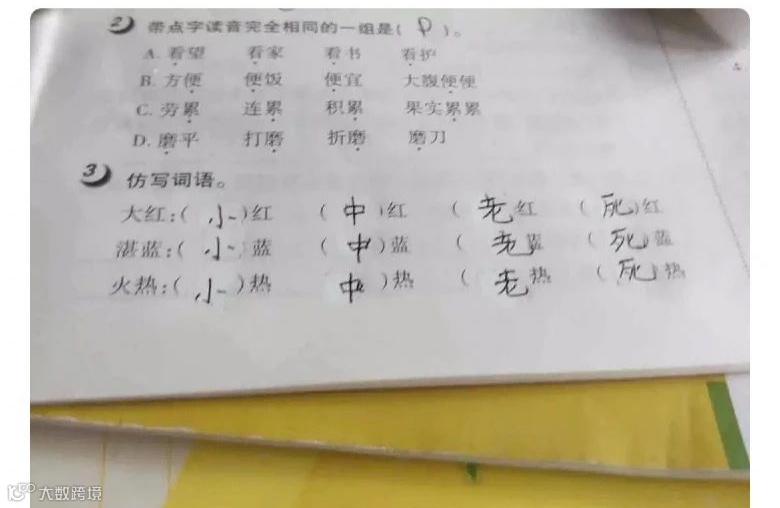 2 带点字读音完全相同的一组是( D )。
A. 看望 看家 看书 看护
B. 方便 便饭 便宜 大腹便便
C. 劳累 连累 积累 果实累累
D. 磨平 打磨 折磨 磨刀
3 仿写词语。
大红:( 小 )红 ( 中 )红 ( 老 红 ( 死 )红
湛蓝:( 小 )蓝 ( 中 )蓝 ( 老 蓝 ( 死 )蓝
火热:( 小 )热 中 )热 ( 老 热 ( 死 )热
大数跨境